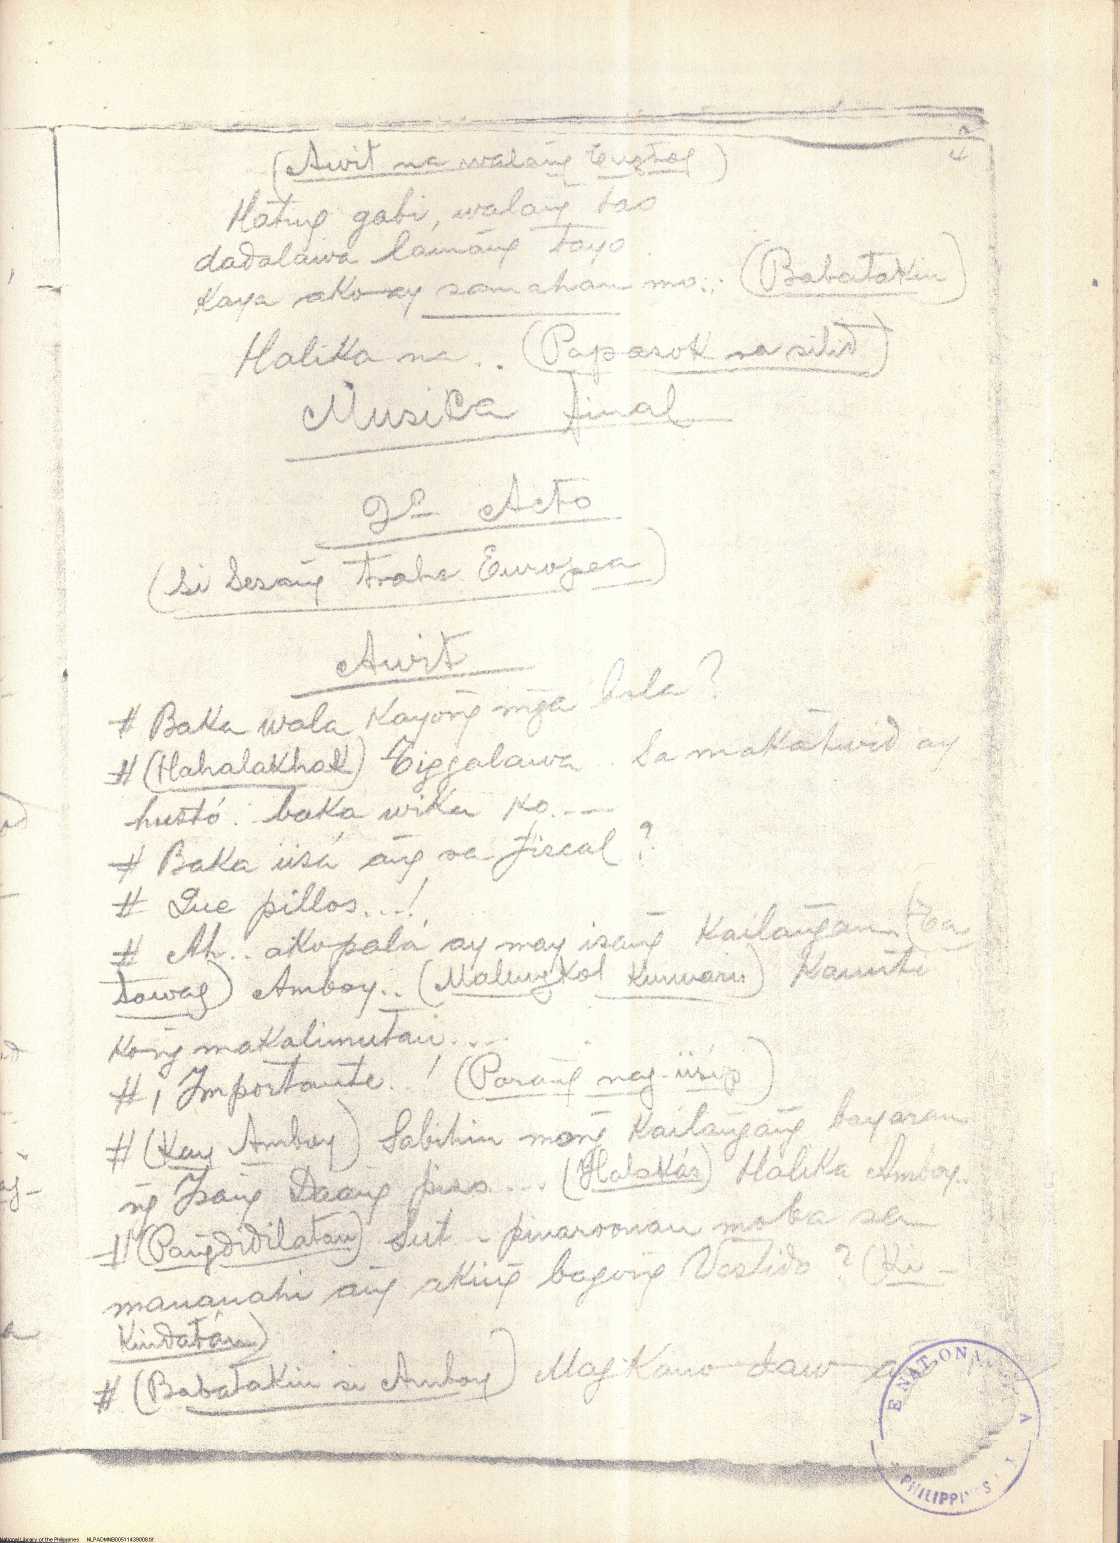 (Awit na walang tugtog)
Hating gabi, walang tao
dadalawa lamang tayo
Kaya ako ay samahan mo... (Babatakin)
Halika na.. (Papasok sa silid)
Musica final
2º Acto
(Si Sesang trahe Europea)
Awit
# Baka wala Kayong mga bola?
# (Hahalakhak) Tiggalawa.. Sa makatuwid ay
husto. baka wika ko....
# Baka iisá ang sa fiscal?
# Que pillos...!
# Ah.. ako palá ay may isang Kailangan (Ta
tawag) Amboy.. (Malungkot kunwari) Kaunti
Kong makalimutan....
# ¡Importante..! (Parang nag-iisip)
# (Kay Amboy) Sabihin mong Kailangang bayaran
ng Isang Daang piso.... (Halakás) Halika Amboy..
# (Pangdidilatan) Sut - pinaroonan mo ba sa
mananahi ang aking bagong Vestido? (Ki-
Kindatan)
# (Babatakin si Amboy) Magkano daw
E NATIONAL
PHILIPPINES
National Library of the Philippines NLPADMNB00511439009.tif